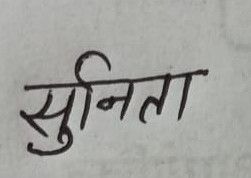 सुनिता